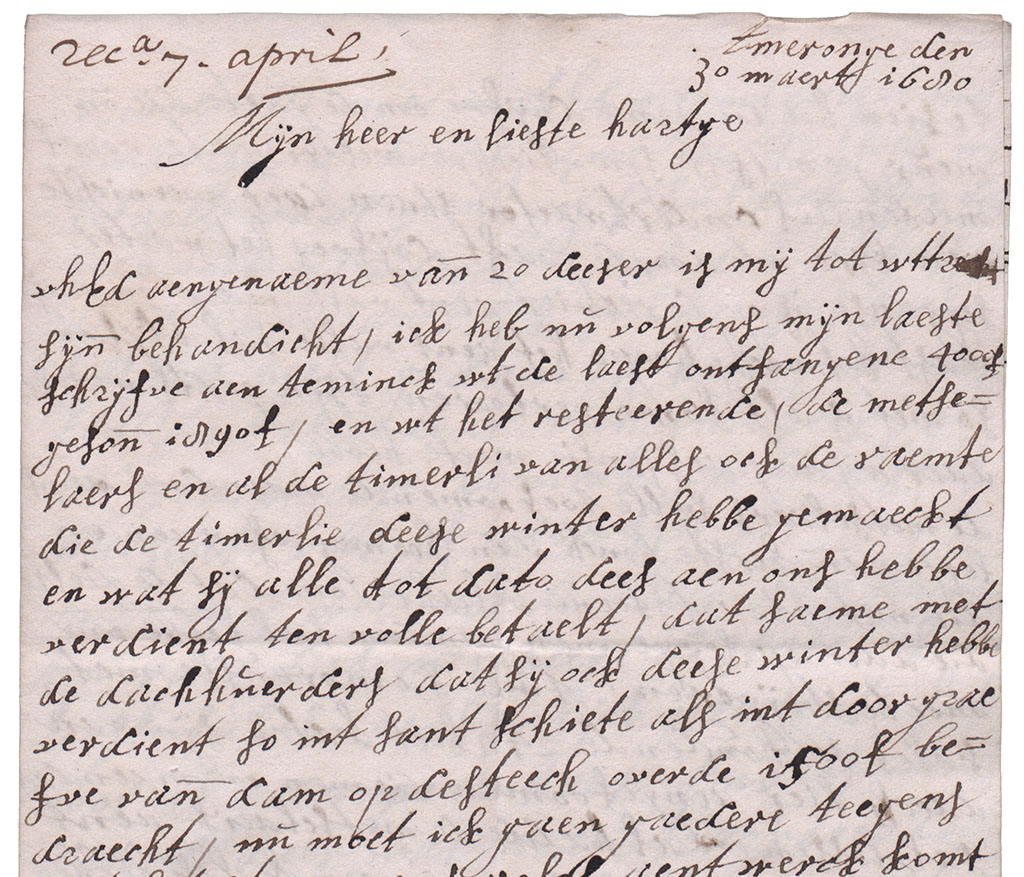 reca. 7. april
Ameronge den
30 maert 1680
Mijn heer en lieste hartge
uhEd aengenaeme vañ 20 deeser is mij tot wttrecht
sijñ behandicht, ick heb nu volgens mijn laeste
schrijfve aen teminck wt de laest ontfangene 4000f
geson̄ 1890f, en wt het resteerende, de metse=
laers en al de timerli van alles ock de raemte
die de timerlie deese winter hebbe gemaeckt
en wat sij alle tot dato dees aen ons hebbe
verdient ten volle betaelt, dat saeme met
de dachhuerders dat sij ock deese winter hebbe
verdient so int sant schiete als int door grae
fve vañ dam op de steech over de 1500f be=
draecht, nu moet ick gaen gaedere teegens
werck komt